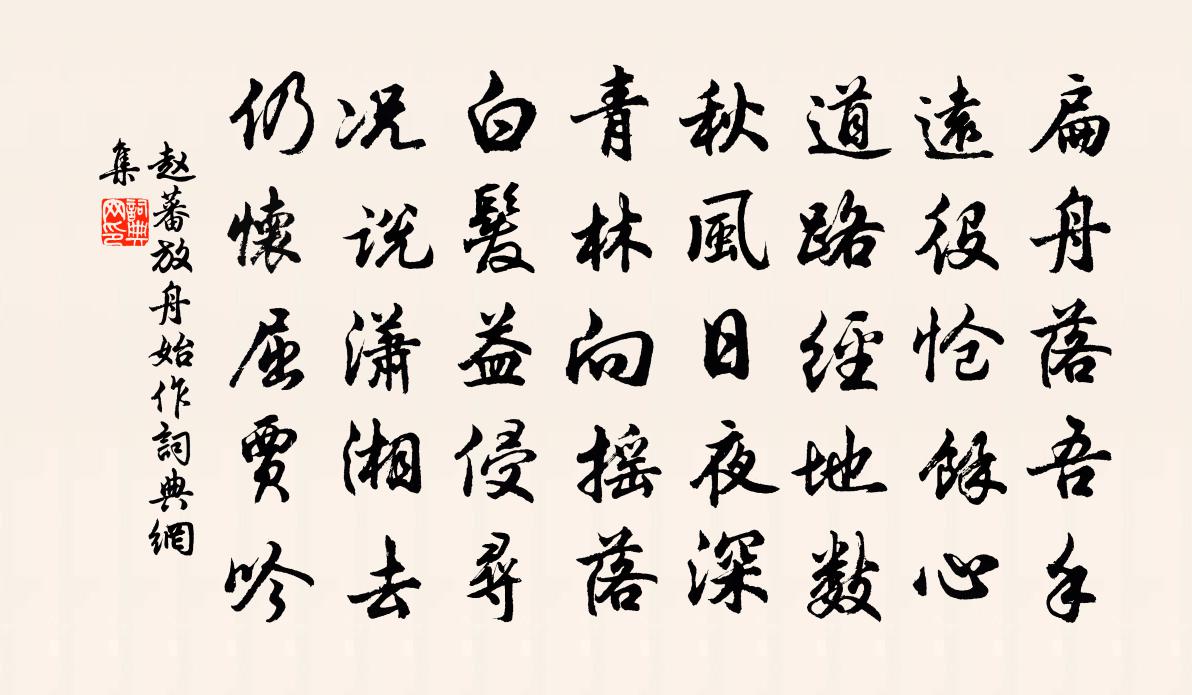 扁舟落吾手
遠役愴餘心
道路經地數
秋風日夜深
青林向摇落
白髮益侵尋
况说瀟湘去
仍懷屈賈吟
赵蕃放舟始作詞典網
集
詞典
网印